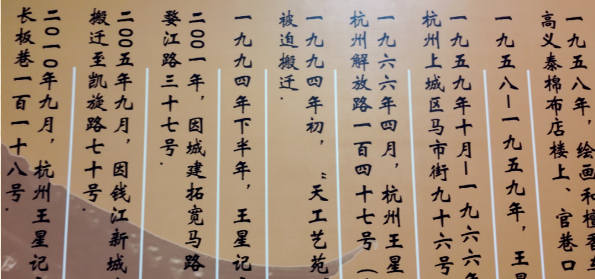 一九五八年，绘画和檀香
高义泰棉布店楼上、官巷口
一九五八—一九五九年，王星
一九五九年十月—一九六六年
杭州上城区马市街九十六号
一九六六年四月，杭州王星
杭州解放路一百四十七号（
一九九四年初，“天工艺苑
被迫搬迁.
一九九四年下半年，王星记
二〇〇一年，因城建拓宽马路
婺江路三十七号.
二〇〇五年九月，因钱江新城
搬迁至凯旋路七十号.
二〇一〇年九月，杭州王星记
长板巷一百一十八号.